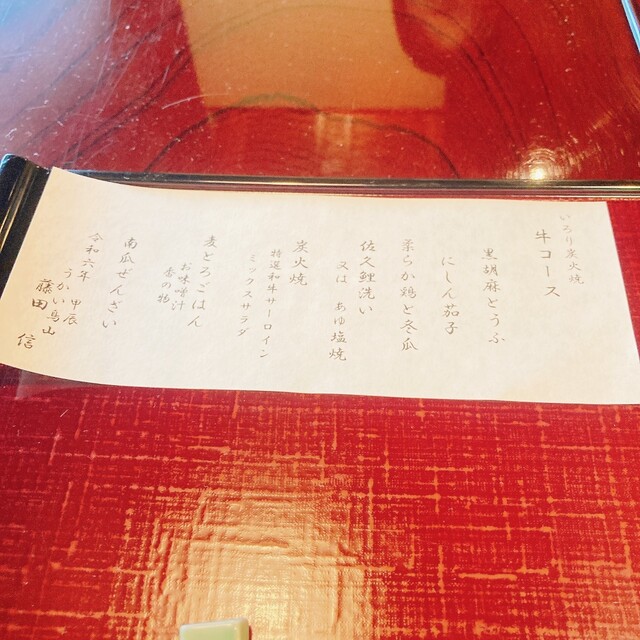 いろり炭火焼
牛コース
黒胡麻とうふ
にしん茄子
柔らか鶏と冬瓜
佐久鯉洗い
又は あゆ塩焼
炭火焼
特選和牛サーロイン
ミックスサラダ
麦とろごはん
お味噌汁
香の物
南瓜ぜんざい
令和六年 甲辰
うかい鳥山
藤田 信